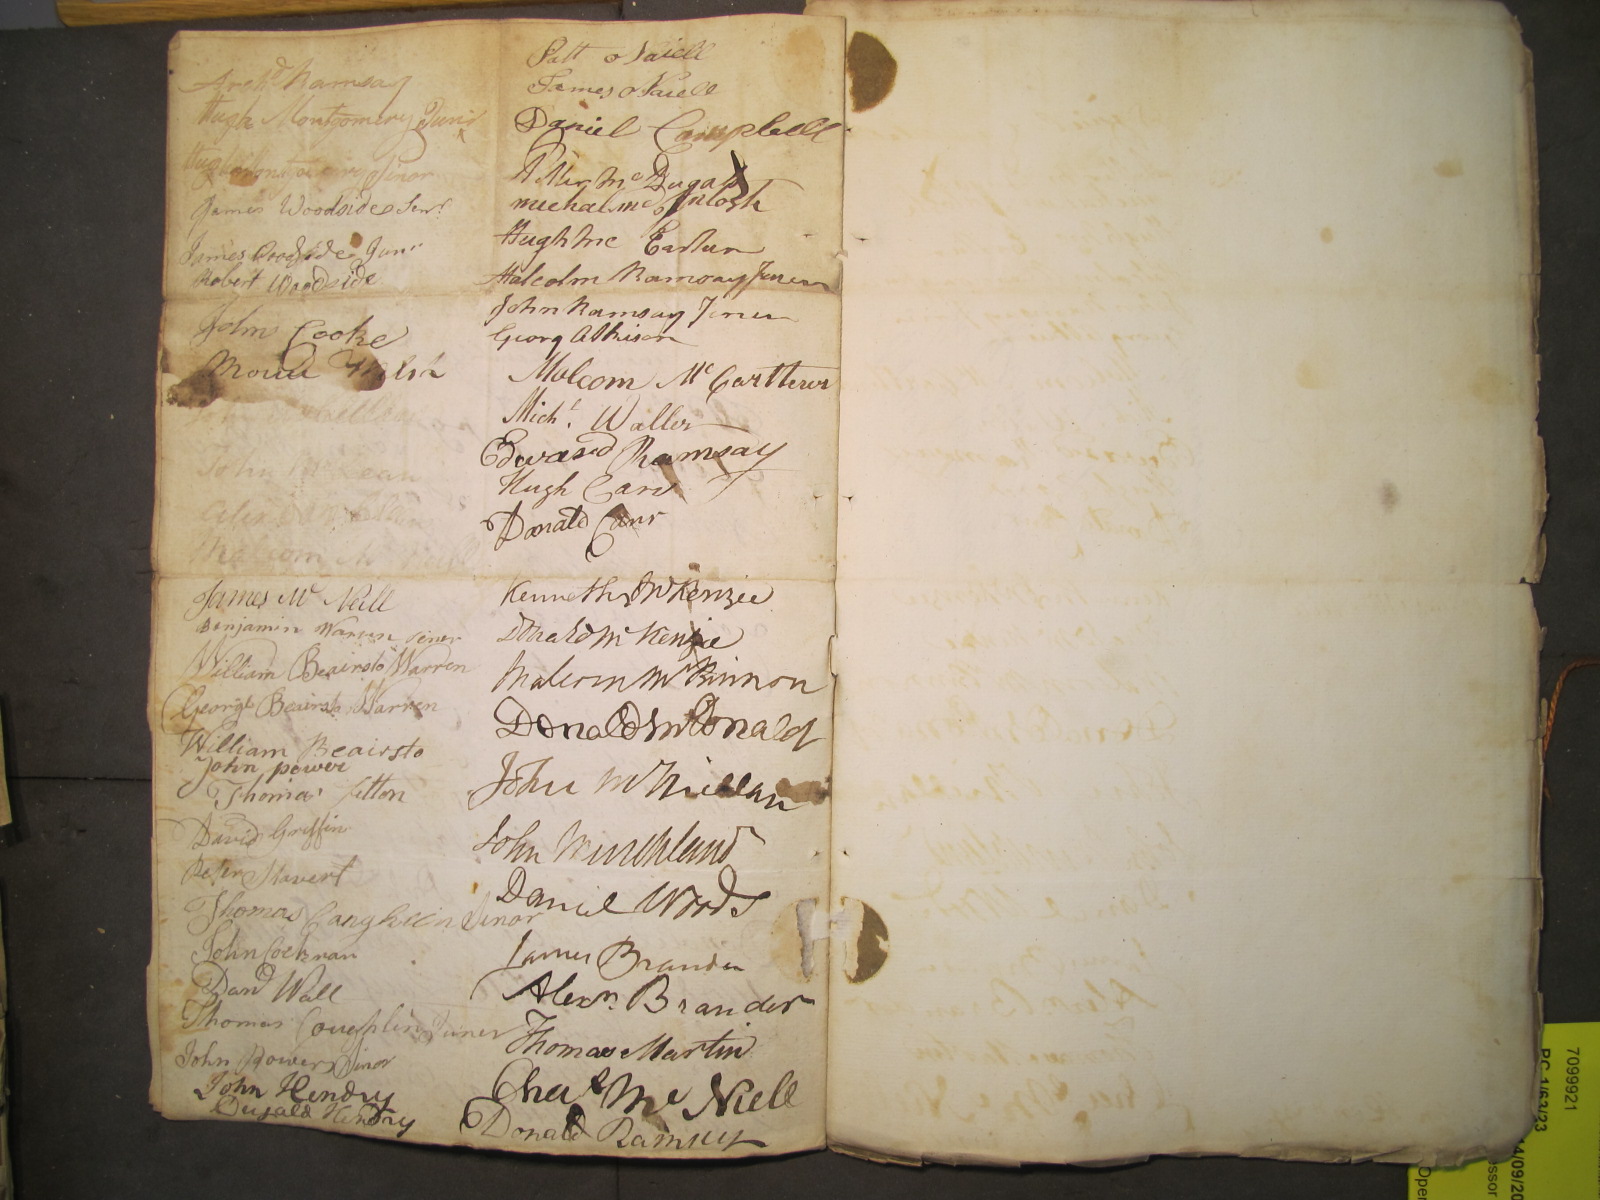 Arch.d Ramsay
Hugh Montgomery Junr
Hugh Montgomery Sinor
James Woodside Senr
James Woodside Junr
Robert Woodside
John Cooke
Welsh
John McLean
Malcom Mc
James Mc Neill
Benjamin Warren Siner
William Beairsto Warren
George Beairsto Warren
William Beairsto
John power
Thomas Sitton
David Griffin
Peter Stavert
Thomas Caughlin Sinor
John Cockran
Davd Wall
Thomas Coughlin Juner
John Power Sinor
John Hendry
Dugald Hendry
Patt o Naiell
James o Naiell
Daniel Campbell
Peter Mc Dugald
Michal Mc Intosh
Hugh Mc Earlurn
Malcolm Ramsay Juner
John Ramsay Juner
Georg Atkison
Malcom Mc Cartteur
Michl. Waller
Edward Ramsay
Hugh Carr
Donald Carr
Kenneth McKenzie
Donald Mc Kenzie
Malcom Mc Kinnon
Donald McDonald
John Mc
John
Daniel Woods
James Brander
Alexr. Brander
Thomas Martin
Chas Mc Niell
Donald Ramsey
7099921
PC 1/63/23
14/09/20